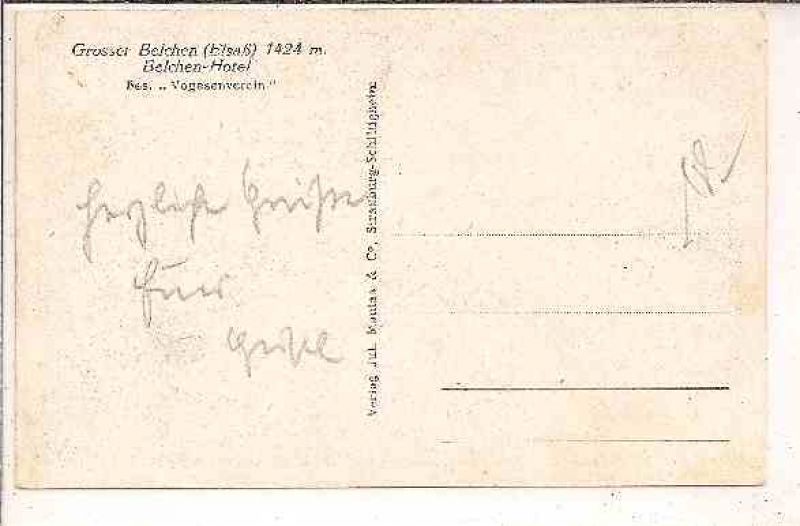 Grosser Belchen (Elsaß) 1424 m.
Belchen-Hotel
Bes. „Vogesenverein"
herzliche Grüße
Verlag Jul. Manias & Co., Strassburg-Schiltigheim